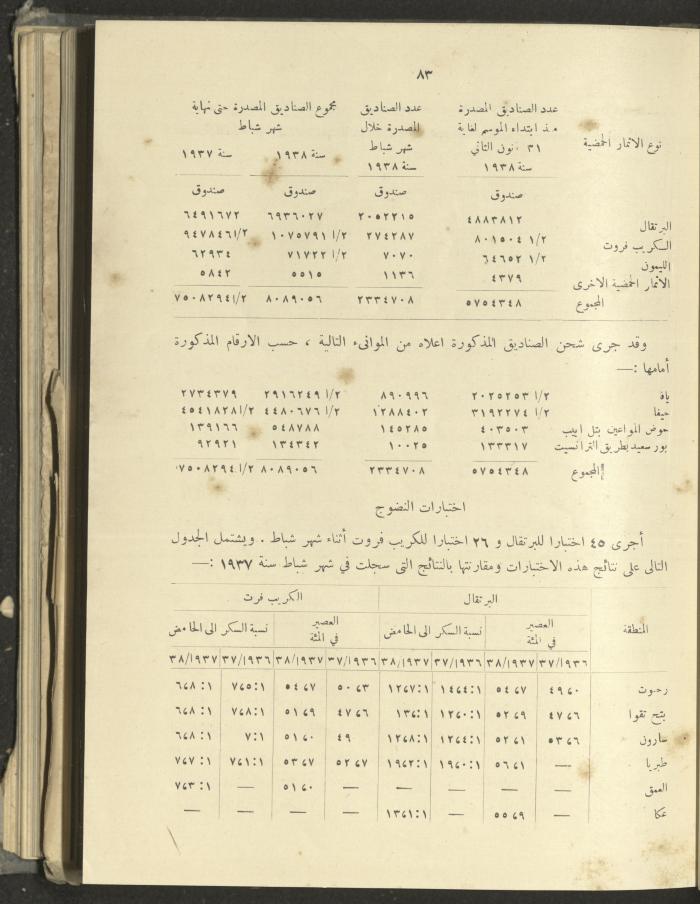 ٨٣
نوع الاثمار الحمضية	عدد الصناديق المصدرة منذ ابتداء الموسم لغاية ٣١ نون الثاني سنة ١٩٣٨	عدد الصناديق المصدرة خلال شهر شباط سنة ١٩٣٨	مجموع الصناديق المصدرة حتى نهاية شهر شباط سنة ١٩٣٨	سنة ١٩٣٧
صندوق	صندوق	صندوق	صندوق
البرتقال	٤٨٨٣٨١٢	٢٠٥٢٢١٥	٦٩٣٦٠٢٧	٦٤٩١٦٧٢
السكريب فروت	٨٠١٥٠٤ ١/٢	٢٧٤٢٨٧	١٠٧٥٧٩١ ١/٢	٩٤٧٨٤٦ ١/٢
الليمون	٦٤٦٥٢ ١/٢	٧٠٧٠	٧١٧٢٢ ١/٢	٦٢٩٣٤
الاثمار الحمضية الاخرى	٤٣٧٩	١١٣٦	٥٥١٥	٥٨٤٢
المجموع	٥٧٥٤٣٤٨	٢٣٣٤٧٠٨	٨٠٨٩٠٥٦	٧٥٠٨٢٩٤ ١/٢
وقد جرى شحن الصناديق المذكورة اعلاه من الموانىء التالية ، حسب الارقام المذكورة
أمامها :—
يافا	٢٠٢٥٢٥٣ ١/٢	٨٩٠٩٩٦	٢٩١٦٢٤٩ ١/٢	٢٧٣٤٣٧٩
حيفا	٣١٩٢٢٧٤ ١/٢	١٢٨٨٤٠٢	٤٤٨٠٦٧٦ ١/٢	٤٥٤١٨٢٨ ١/٢
حوض المواعين بتل ابيب	٤٠٣٥٠٣	١٤٥٢٨٥	٥٤٨٧٨٨	١٣٩١٦٦
بور سعيد بطريق الترانسيت	١٣٣٣١٧	١٠٠٢٥	١٣٤٣٤٢	٩٢٩٢١
المجموع	٥٧٥٤٣٤٨	٢٣٣٤٧٠٨	٨٠٨٩٠٥٦	٧٥٠٨٢٩٤ ١/٢
اختبارات النضوج
أجرى ٤٥ اختبارا للبرتقال و ٢٦ اختبارا للكريب فروت أثناء شهر شباط . ويشتمل الجدول
التالى على نتائج هذه الاختبارات ومقارنتها بالنتائج التى سجلت في شهر شباط سنة ١٩٣٧ :—
المنطقة	البرتقال	الكريب فرت
العصير في المئة	نسبة السكر الى الحامض	العصير في المئة	نسبة السكر الى الحامض
٣٧/١٩٣٦	٣٨/١٩٣٧	٣٧/١٩٣٦	٣٨/١٩٣٧	٣٧/١٩٣٦	٣٨/١٩٣٧	٣٧/١٩٣٦	٣٨/١٩٣٧
رحوت	٤٩٫٠	٥٤٫٧	١:١٤٫٤	١:١٢٫٧	٥٠٫٣	٥٤٫٧	١:٧٫٥	١:٦٫٨
بتح تقوا	٤٧٫٦	٥٢٫٩	١:١٢٫٠	١:١٣٫	٤٧٫٦	٥١٫٩	١:٧٫٨	١:٦٫٨
شارون	٥٣٫٦	٥٢٫١	١:١٢٫٤	١:١٢٫٨	٤٩	٥١٫٠	١:٧	١:٦٫٨
طبريا	—	٥٦٫١	١:١٩٫٠	١:١٩٫٢	٥٢٫٧	٥٣٫٧	١:٧٫١	١:٧٫٧
العمق	—	—	—	—	—	٥١٫٠	—	١:٧٫٣
عكا	—	٥٥٫٩	—	١:١٣٫١	—	—	—	—